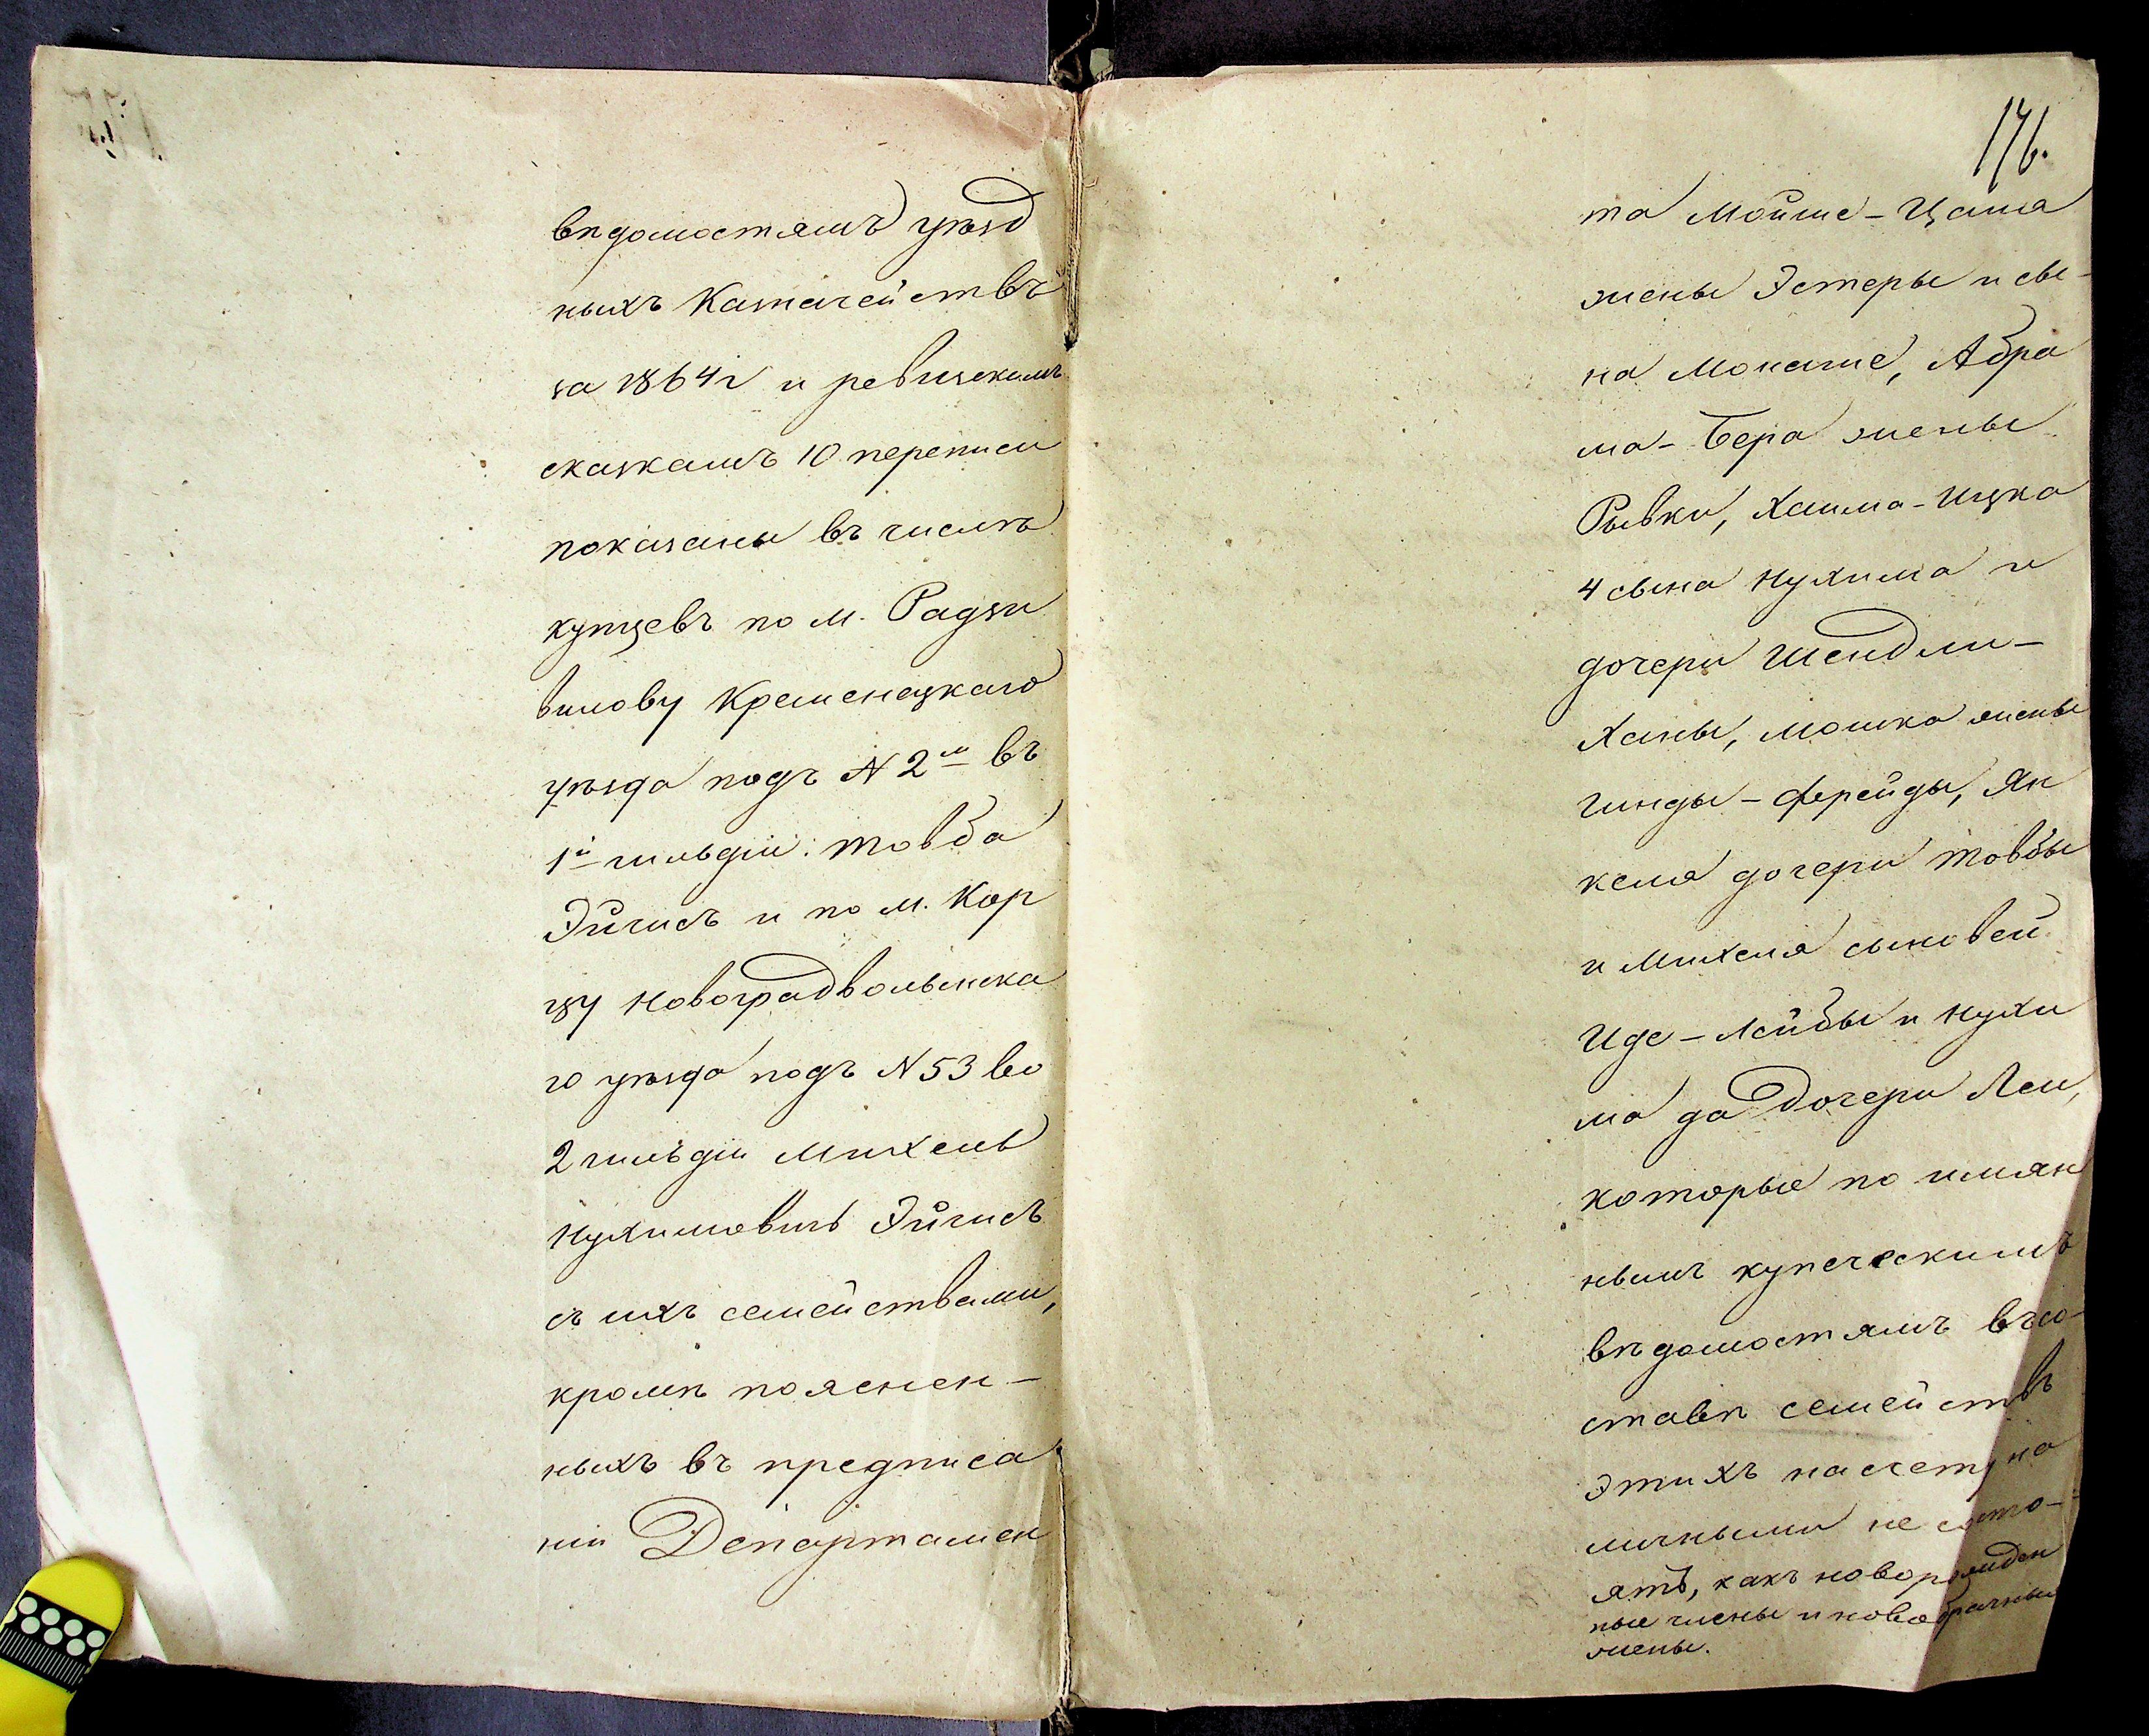 вѣдомостямъ уѣзд
ныхъ Казначействъ
за 1864 г и ревизскимъ
сказкамъ 10 переписи
показаны въ числѣ
купцевъ по м. Радзи
вилову Кременецкаго
уѣзда подъ N 2м въ
1й гильдіи: Товба
Эйгисъ и по м. Кор
цу Новоградволынска
го уѣзда подъ N 53 во
2 гильдіи Михель
Нухимовичь Эйгисъ
съ ихъ семействами,
кромѣ пояснен-
ныхъ въ предписа
ніи Департамен
176.
та Мойше-
жены Эстеры и сы-
на Монаше, Абра
ма-Бера жены
Рывки, Хаима-Ицка
4 сына Нухима и
дочери Шендли-
Ханы, Мошка жены
Гинды-Фрейды, Ян
келя дочери Товбы
и Михеля сыновей
Иде-Лейбы и Нухи
ма да дочери Леи,
которые по имян
нымъ купеческимъ
вѣдомостямъ въ со-
ставѣ семействъ
этихъ на счету на
личными не состо-
ятъ, какъ новорожден
ные члены и новобрачныя
жены.